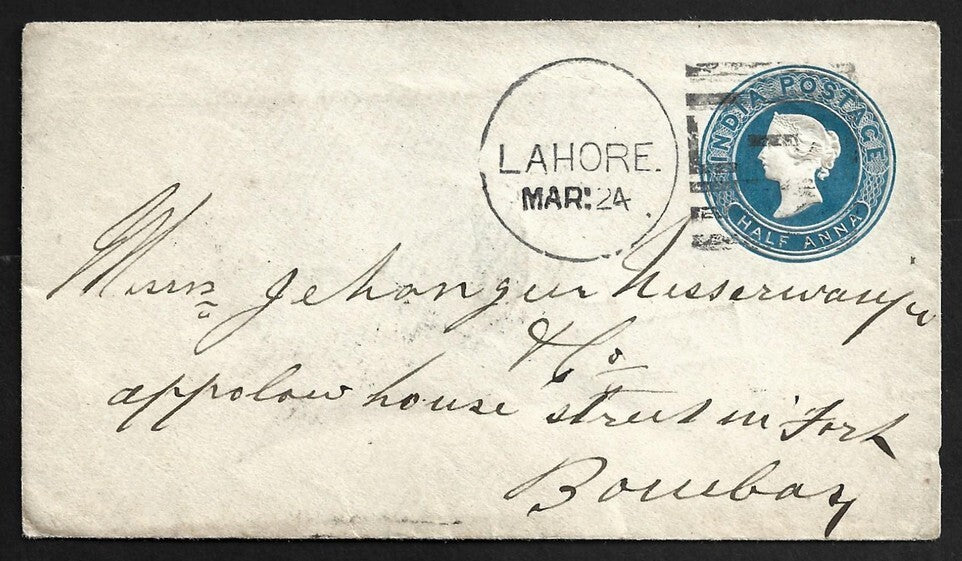 INDIA POSTAGE
HALF ANNA
LAHORE.
MAR: 24
Messrs Jehangir Nesserwanji
& Co
appolow house street in Fort
Bombay